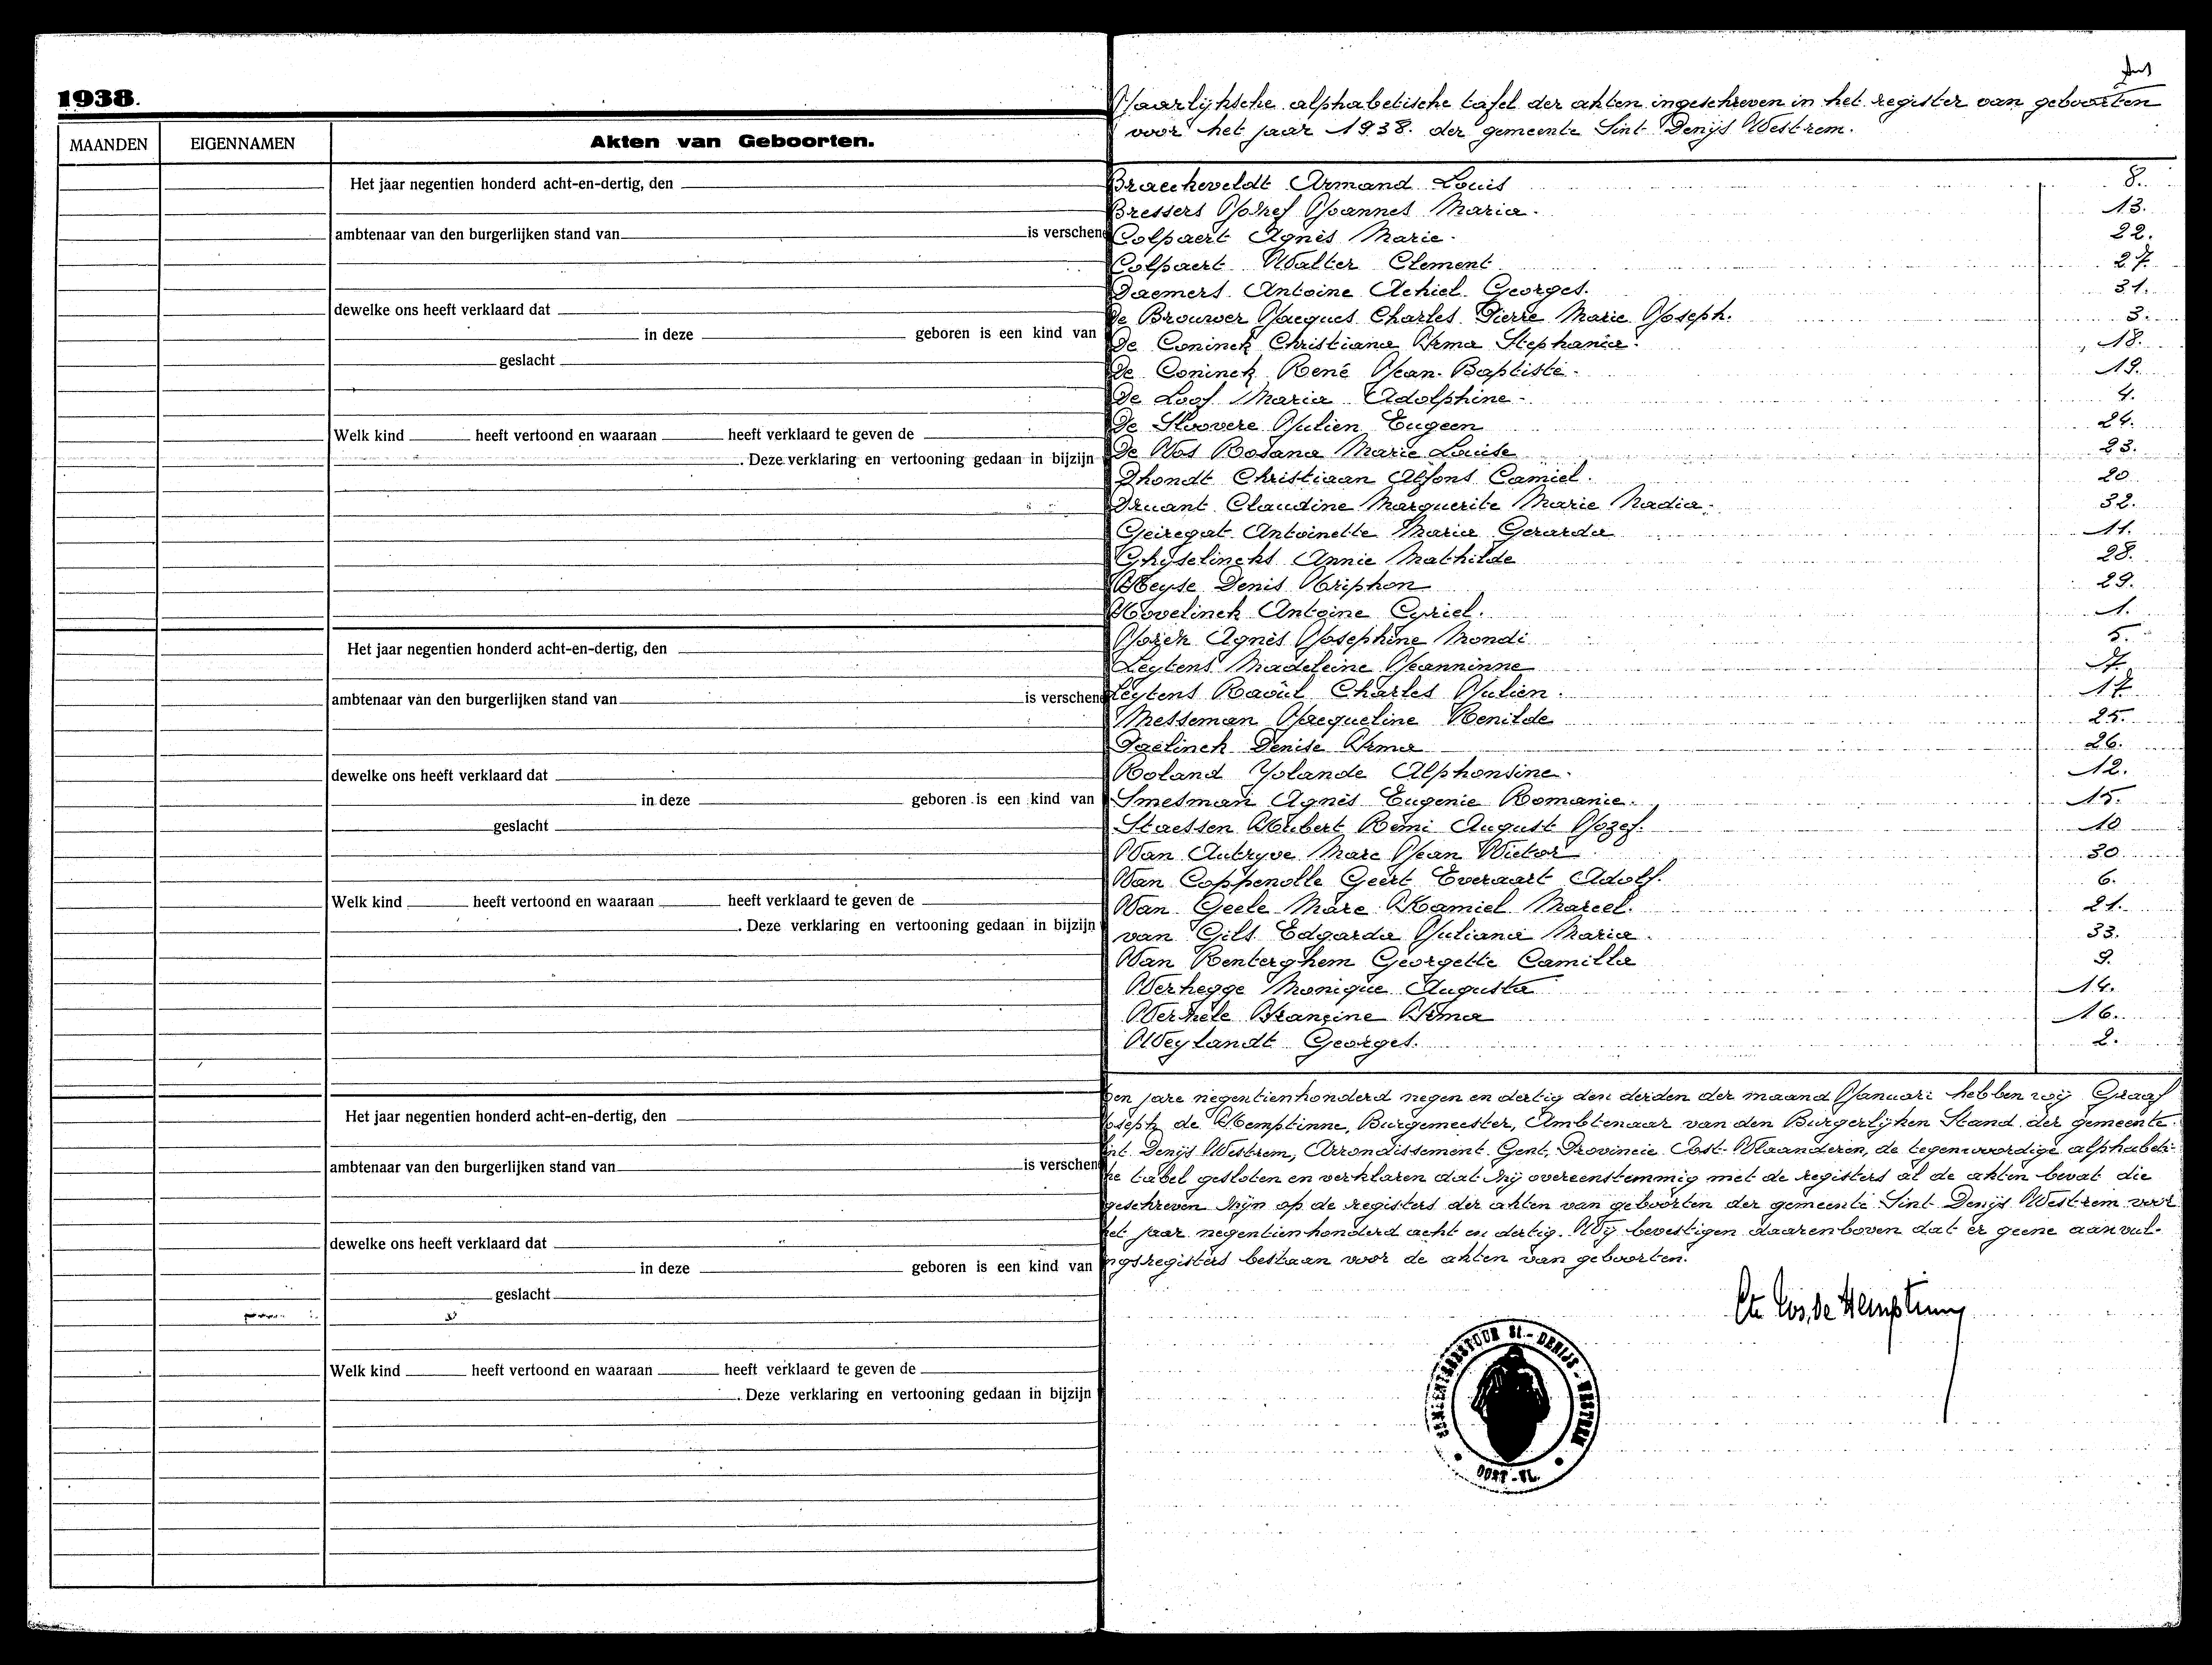 1938.
MAANDEN EIGENNAMEN Akten van Geboorten.
Het jaar negentien honderd acht-en-dertig, den
ambtenaar van den burgerlijken stand van is verschen
dewelke ons heeft verklaard dat
in deze geboren is een kind van
geslacht
Welk kind heeft vertoond en waaraan heeft verklaard te geven de
. Deze verklaring en vertooning gedaan in bijzijn
Het jaar negentien honderd acht-en-dertig, den
ambtenaar van den burgerlijken stand van is verschen
dewelke ons heeft verklaard dat
in deze geboren is een kind van
geslacht
Welk kind heeft vertoond en waaraan heeft verklaard te geven de
. Deze verklaring en vertooning gedaan in bijzijn
Het jaar negentien honderd acht-en-dertig, den
ambtenaar van den burgerlijken stand van is verschen
dewelke ons heeft verklaard dat
in deze geboren is een kind van
geslacht
Welk kind heeft vertoond en waaraan heeft verklaard te geven de
. Deze verklaring en vertooning gedaan in bijzijn
Jaarlijksche alphabetische tafel der akten ingeschreven in het register van geboorten
voor het jaar 1938. der gemeente Sint Denijs Westrem.
Braeckeveldt Armand Louis 8.
Bressers Jozef Joannes Maria. 13.
Colpaert Agnès Marie. 22.
Colpaert Walter Clement 27.
Daemers Antoine Achiel Georges. 31.
De Brouwer Jacques Charles Pierre Marie Joseph. 3.
De Coninck Christiana Irma Stephania. 18.
De Coninck René Jean-Baptiste. 19.
De Loof Maria Adolphine. 4.
De Sloovere Julien Eugeen 24.
De Vos Rosana Marie Louise 23.
Dhondt Christiaan Alfons Camiel. 20
Druant Claudine Marguerite Marie Nadia. 32.
Geiregat Antoinette Maria Gerarda 11.
Ghyselinckt Annie Mathilde 28.
Heyse Denis Triphon 29.
Hovelinck Antoine Cyriel. 1.
Jozch Agnès Josephine Mondi 5.
Leytens Madeleine Jeanninne 7.
Leytens Raoül Charles Julien. 17.
Messeman Jacqueline Renilde 25.
Paelinck Denise Irma 26.
Roland Yolande Alphonsine. 12.
Smesman Agnès Eugenie Romanie. 15.
Staessen Hubert Remi August Jozef. 10
Van Autryve Marc Jean Victor 30
Van Coppenolle Geert Everaart Adolf. 6.
Van Geele Marc Kamiel Marcel. 21.
van Gils Edgarda Juliana Maria. 33.
Van Renterghem Georgette Camilla 9.
Verhegge Monique Augusta 14.
Verhele Francine Irma 16.
Weylandt Georges. 2.
en jare negentienhonderd negen en dertig den derden der maand Januari hebben wij Graaf
oseph de Hemptinne, Burgemeester, Ambtenaar van den Burgerlijken Stand der gemeente
int Denijs Westrem, Arrondissement Gent, Provincie Oost-Vlaanderen, de tegenwoordige alphabeti-
he tabel gesloten en verklaren dat zij overeenstemmig met de registers al de akten bevat die
geschreven zijn op de registers der akten van geboorten der gemeente Sint Denijs Westrem voor
et jaar negentienhonderd acht en dertig. Wij bevestigen daarenboven dat er geene aanvul-
ngsregisters bestaan voor de akten van geboorten.
Cte Jos. de Hemptinne
GEMEENTEBESTUUR ST.-DENIJS-WESTREM
OOST-VL.